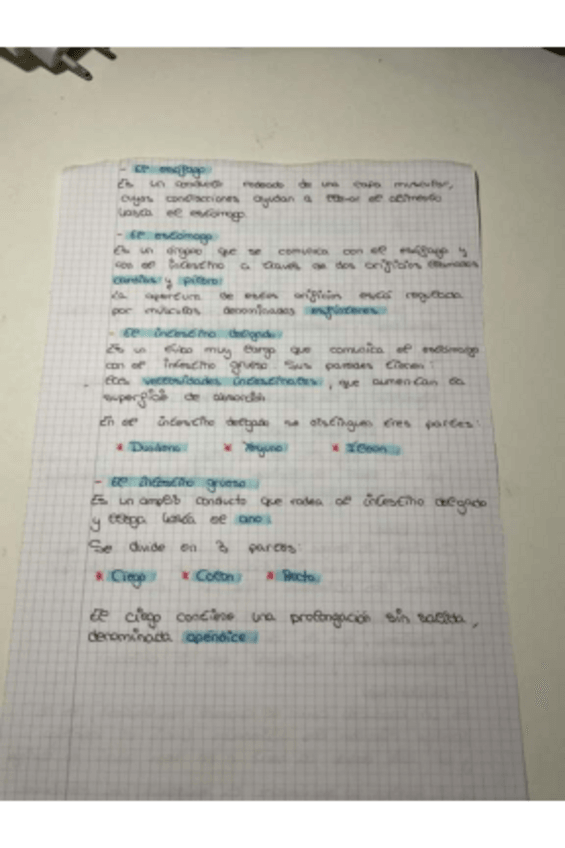 - El esófago
Es un conducto rodeado de una capa muscular,
cuyas contracciones ayudan a llevar el alimento
hasta el estómago.
- El estómago
Es un órgano que se comunica con el esófago y
con el intestino a través de dos orificios llamados
cardias y píloro
La apertura de estos orificios está regulada
por músculos denominados esfínteres.
- El intestino delgado
Es un tubo muy largo que comunica el estómago
con el intestino grueso. Sus paredes tienen:
las vellosidades intestinales, que aumentan la
superficie de absorción
En el intestino delgado se distinguen tres partes:
* Duodeno * Yeyuno * Íleon
- El intestino grueso
Es un amplio conducto que rodea al intestino delgado
y llega hasta el ano.
Se divide en 3 partes:
* Ciego * Colon * Recto
El ciego contiene una prolongación sin salida,
denominada apéndice.